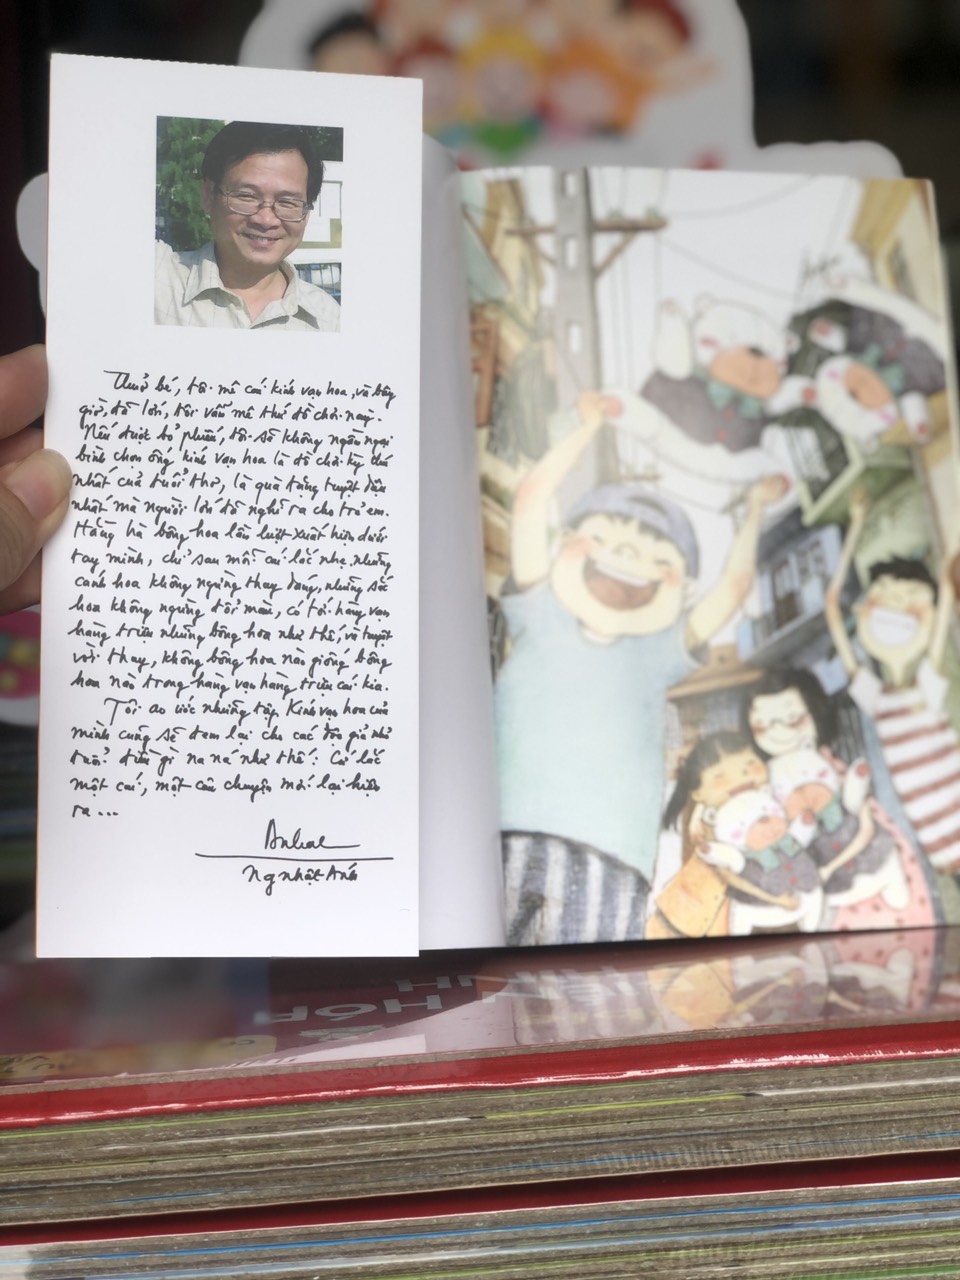 Thuở bé, tôi mê cái kính vạn hoa, và bây
giờ, đã lớn, tôi vẫn mê thứ đồ chơi này.
Nếu được bỏ phiếu, tôi sẽ không ngần ngại
bình chọn ống kính vạn hoa là đồ chơi kỳ thú
nhất của tuổi thơ, là quà tặng tuyệt diệu
nhất mà người lớn đã nghĩ ra cho trẻ em.
Hằng hà bông hoa lần lượt xuất hiện dưới
tay mình, chỉ sau mỗi cái lắc nhẹ, những
cánh hoa không ngừng thay dáng, những sắc
hoa không ngừng đổi màu, có tới hàng vạn
hàng triệu những bông hoa như thế, và tuyệt
vời thay, không bông hoa nào giống bông
hoa nào trong hàng vạn hàng triệu cái kia.
Tôi ao ước những tập Kính vạn hoa của
mình cũng sẽ đem lại cho các độc giả nhỏ
tuổi điều gì na ná như thế: Cứ lắc
một cái, một câu chuyện mới lại hiện
ra...
Ng nhật Ánh
HỢP